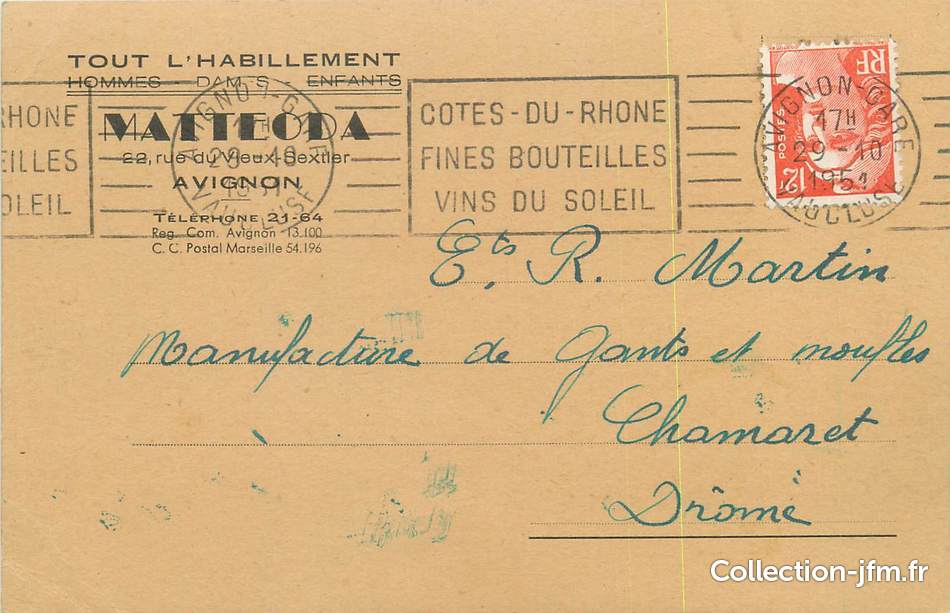 TOUT L'HABILLEMENT
HOMMES - DAMES - ENFANTS
MATTEODA
22, rue du Vieux-Sextier
AVIGNON
TÉLÉPHONE 21-64
Reg. Com. Avignon 13.100
C. C. Postal Marseille 54.196
RHONE
EILLES
OLEIL
AVIGNON-GARE
29-10
VAUCLUSE
COTES-DU-RHONE
FINES BOUTEILLES
VINS DU SOLEIL
RF
POSTES
12F
AVIGNON-GARE
17H
29-10
1951
VAUCLUSE
Ets R. Martin
Manufacture de gants et moufles
Chamaret
Drôme
Collection-jfm.fr